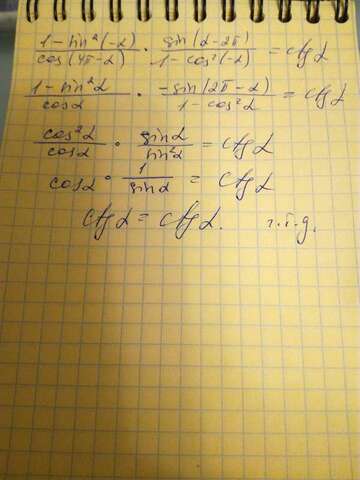 (1-sin²(-α))/cos(4π-α) · sin(α-2π)/(1-cos²(-α)) = ctgα
(1-sin²α)/cosα · -sin(2π-α)/(1-cos²α) = ctgα
cos²α/cosα · sinα/sin²α = ctgα
cosα · 1/sinα = ctgα
ctgα = ctgα. ч.т.д.